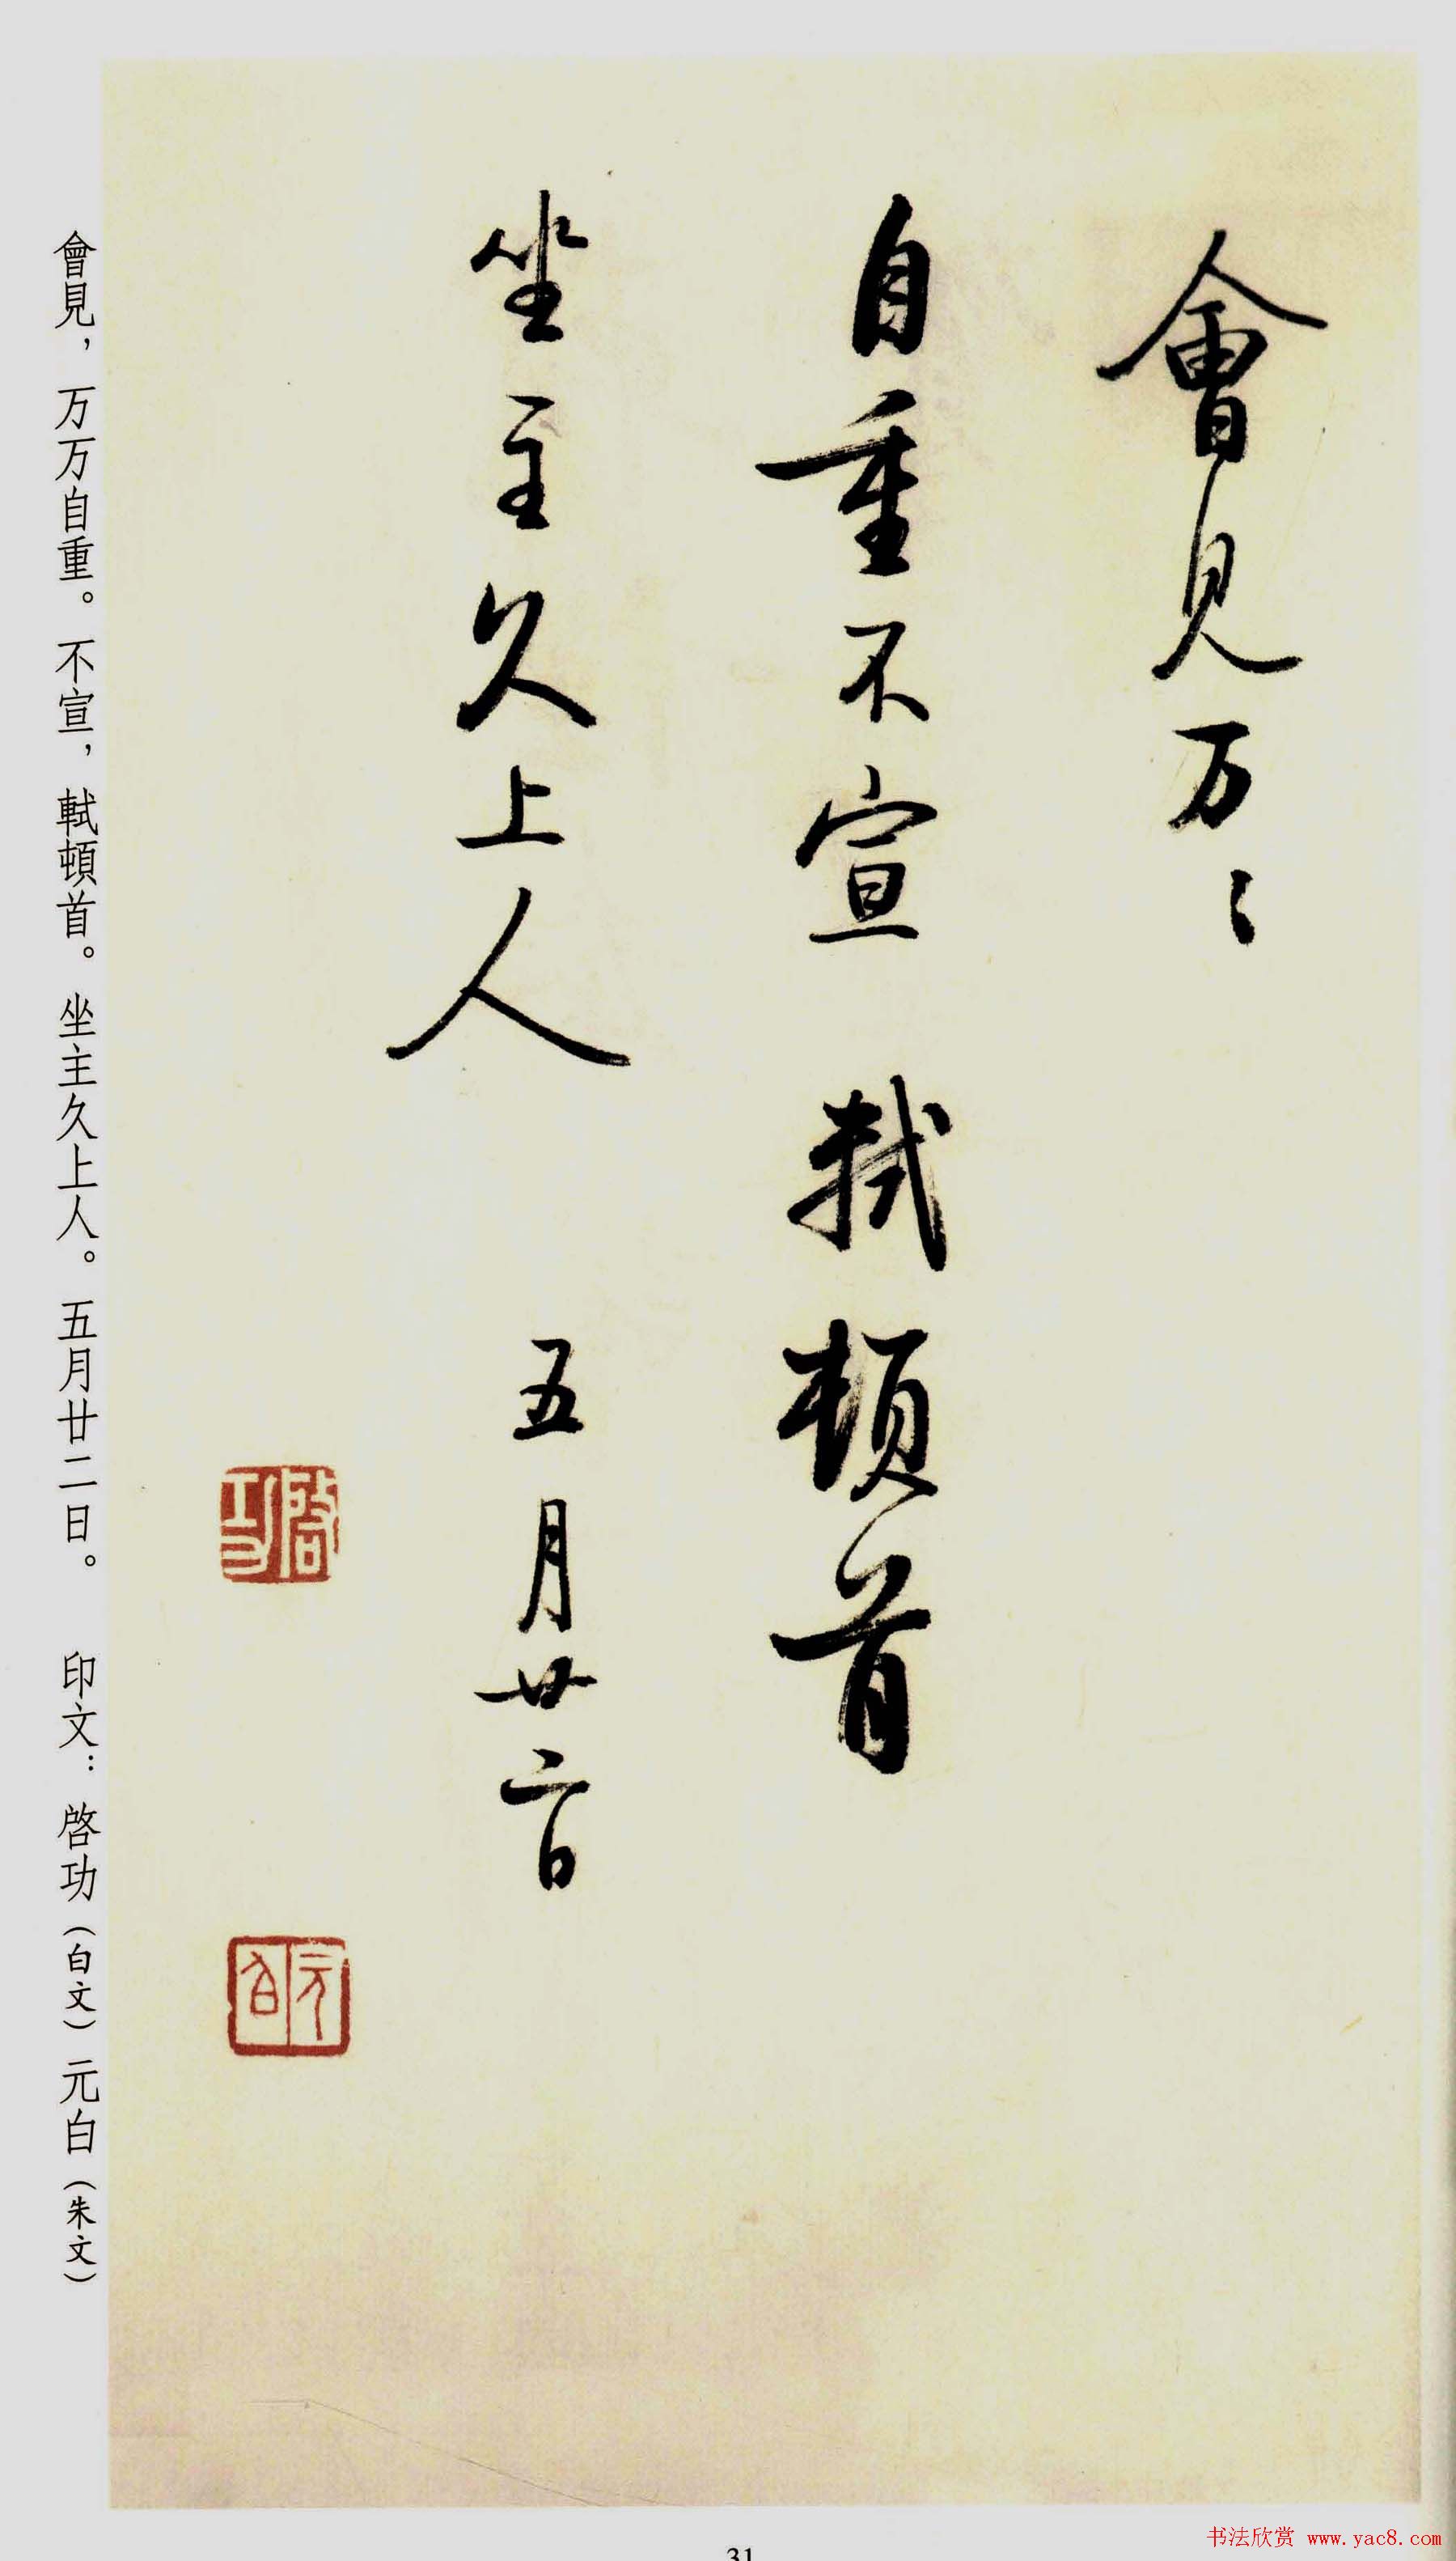 會見万〻
自重不宣 軾頓首
坐主久上人 五月廿二日
啓功
元白
會見，万万自重。不宣，軾頓首。坐主久上人。五月廿二日。 印文：啓功（白文）元白（朱文）
31
书法欣赏 www.yac8.com